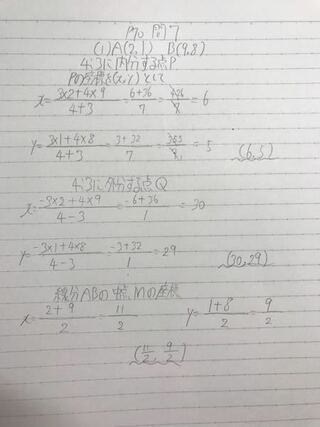 P70 問7
(1) A(2,1) B(9,8)
4:3に内分する点P
Pの座標を(x,y)として
x=3×2+4×9/4+3=6+36/7=42/7=6
y=3×1+4×8/4+3=3+32/7=35/7=5 (6,5)
4:3に外分する点Q
x=-3×2+4×9/4-3=-6+36/1=30
y=-3×1+4×8/4-3=-3+32/1=29 (30,29)
線分ABの中点Mの座標
x=2+9/2=11/2 y=1+8/2=9/2
(11/2, 9/2)